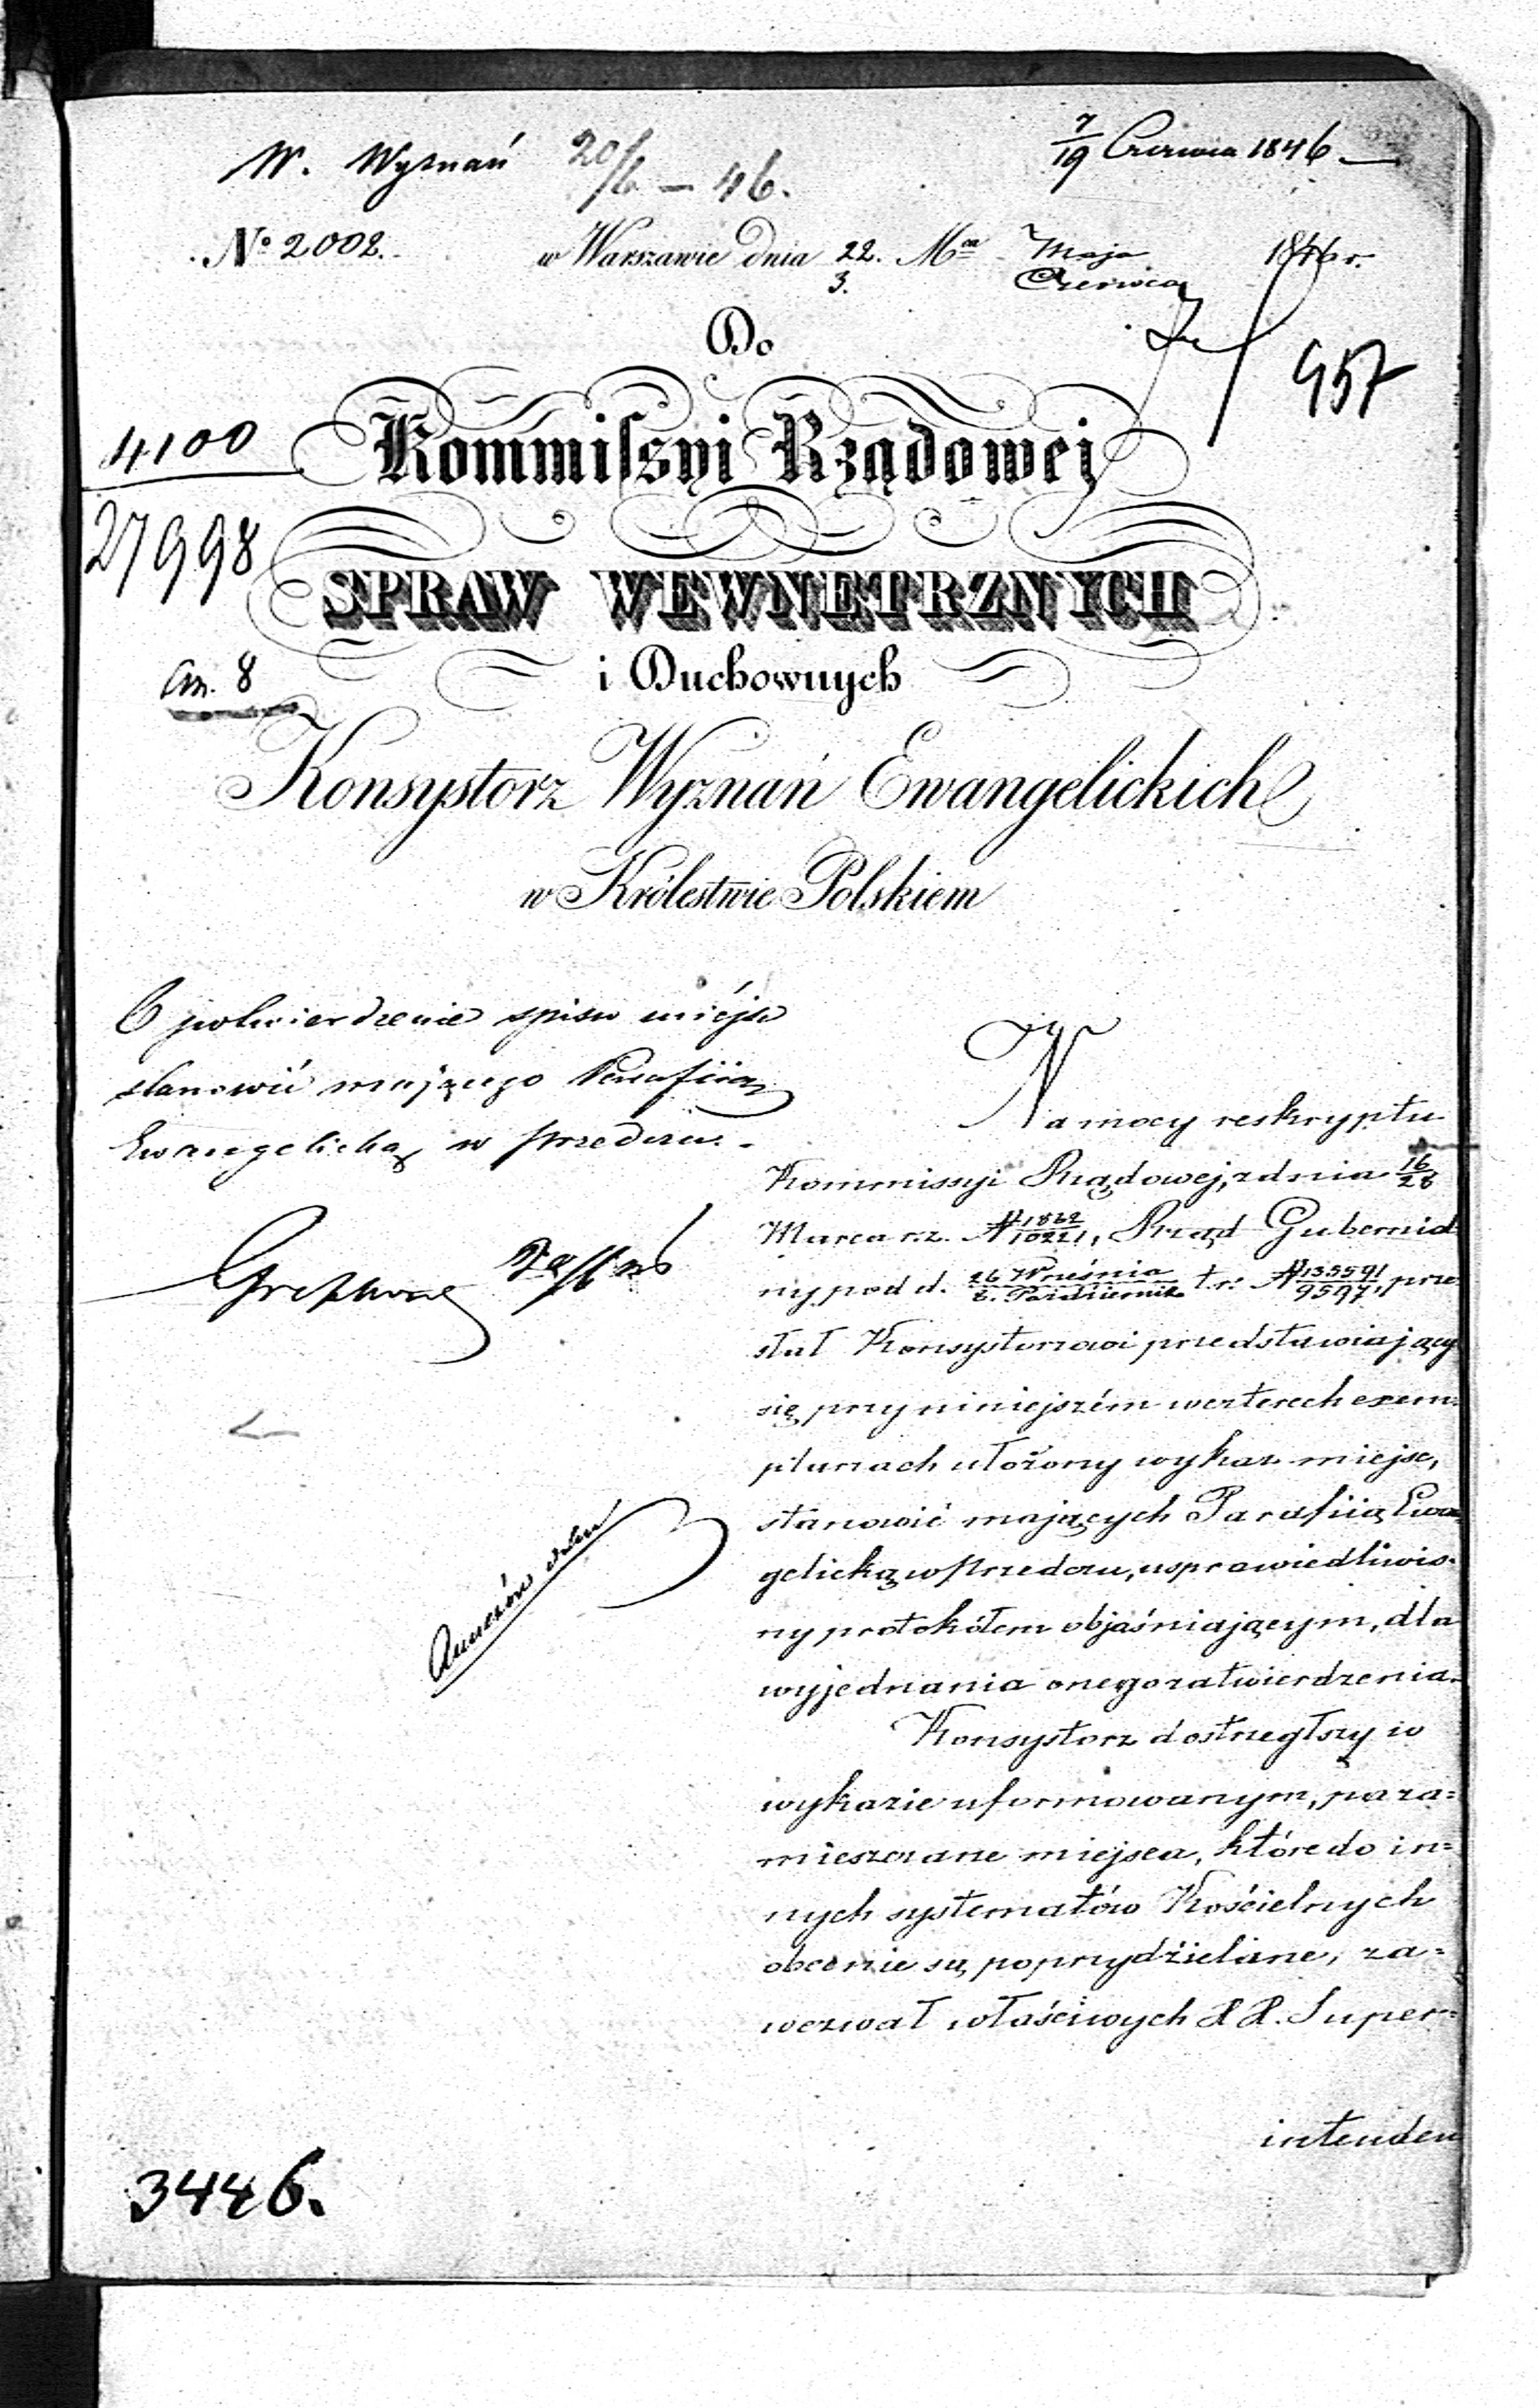 W. Wyznań 20/6 – 46. 7/19 Czerwca 1846
№ 2002. w Warszawie dnia 22./3. Mca Maja/Czerwca 1846 r.
957
Do
4100
Kommissyi Rządowej
27998
SPRAW WEWNĘTRZNYCH
an. 8
i Duchownych
Konsystorz Wyznań Ewangelickich
w Królestwie Polskiem
O potwierdzenie spisu miejsc
stanowić mającego Parafiią
Ewangelicką w Przedczu.
Na mocy reskryptu
Kommissyi Rządowej, z dnia 16/28
Marca r.z. № 1862/10221, Rząd Gubernial
ny pod d. 26 Września/8. Październik t.r. № 135591/9597, prze
słał Konsystorzowi przedstawiający
się przy niniejszém w czterech exem=
plarzach ułożony wykaz miejsc,
stanowić mających Parafiią Ewan
gelicką w Przedczu, usprawiedliwio=
ny protokółem objaśniającym, dla
wyjednania onego zatwierdzenia.
Konsystorz dostrzegłszy w
wykazie uformowanym, poza=
mieszczane miejsca, które do in=
nych systematów Kościelnych
obecnie są poprzydzielane, za=
wezwał właściwych XX. Super=
intenden
Annexów ośm
3446.